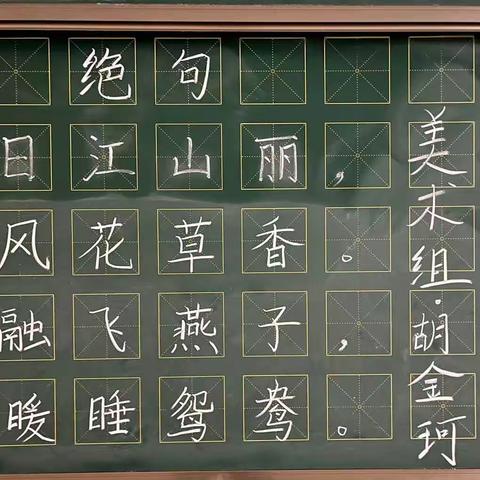 绝句
日江山丽，
风花草香。
融飞燕子，
暖睡鸳鸯。
美术组·胡金珂